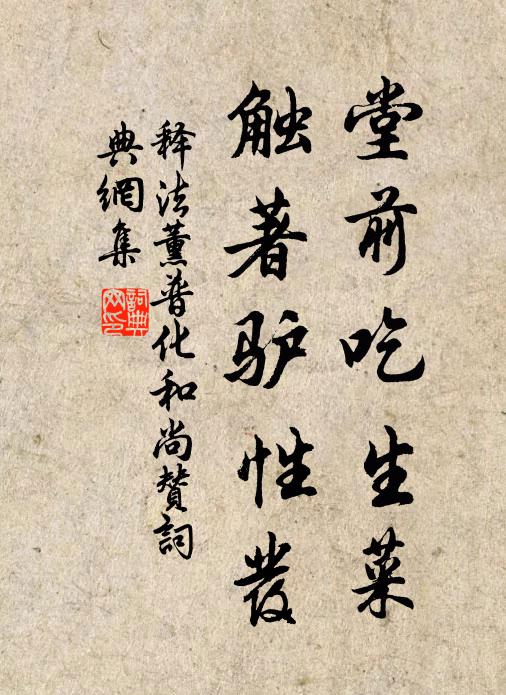 堂前吃生菜
触著驴性發
释法薰普化和尚赞詞
典網集
詞典网印